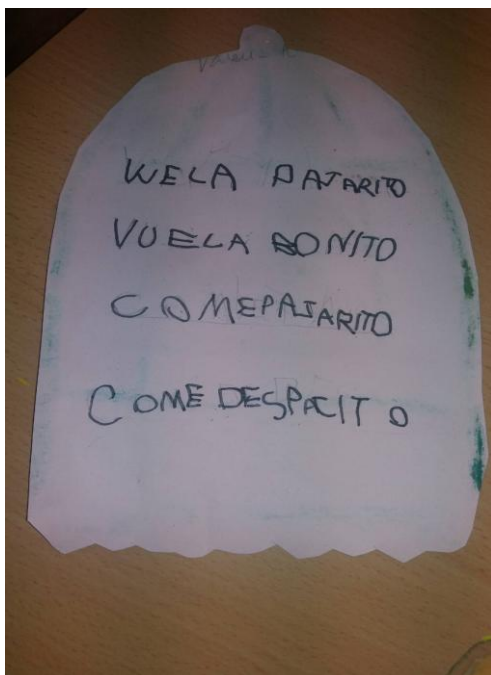 WELA PAJARITO
VUELA BONITO
COMEPAJARITO
COME DESPACITO